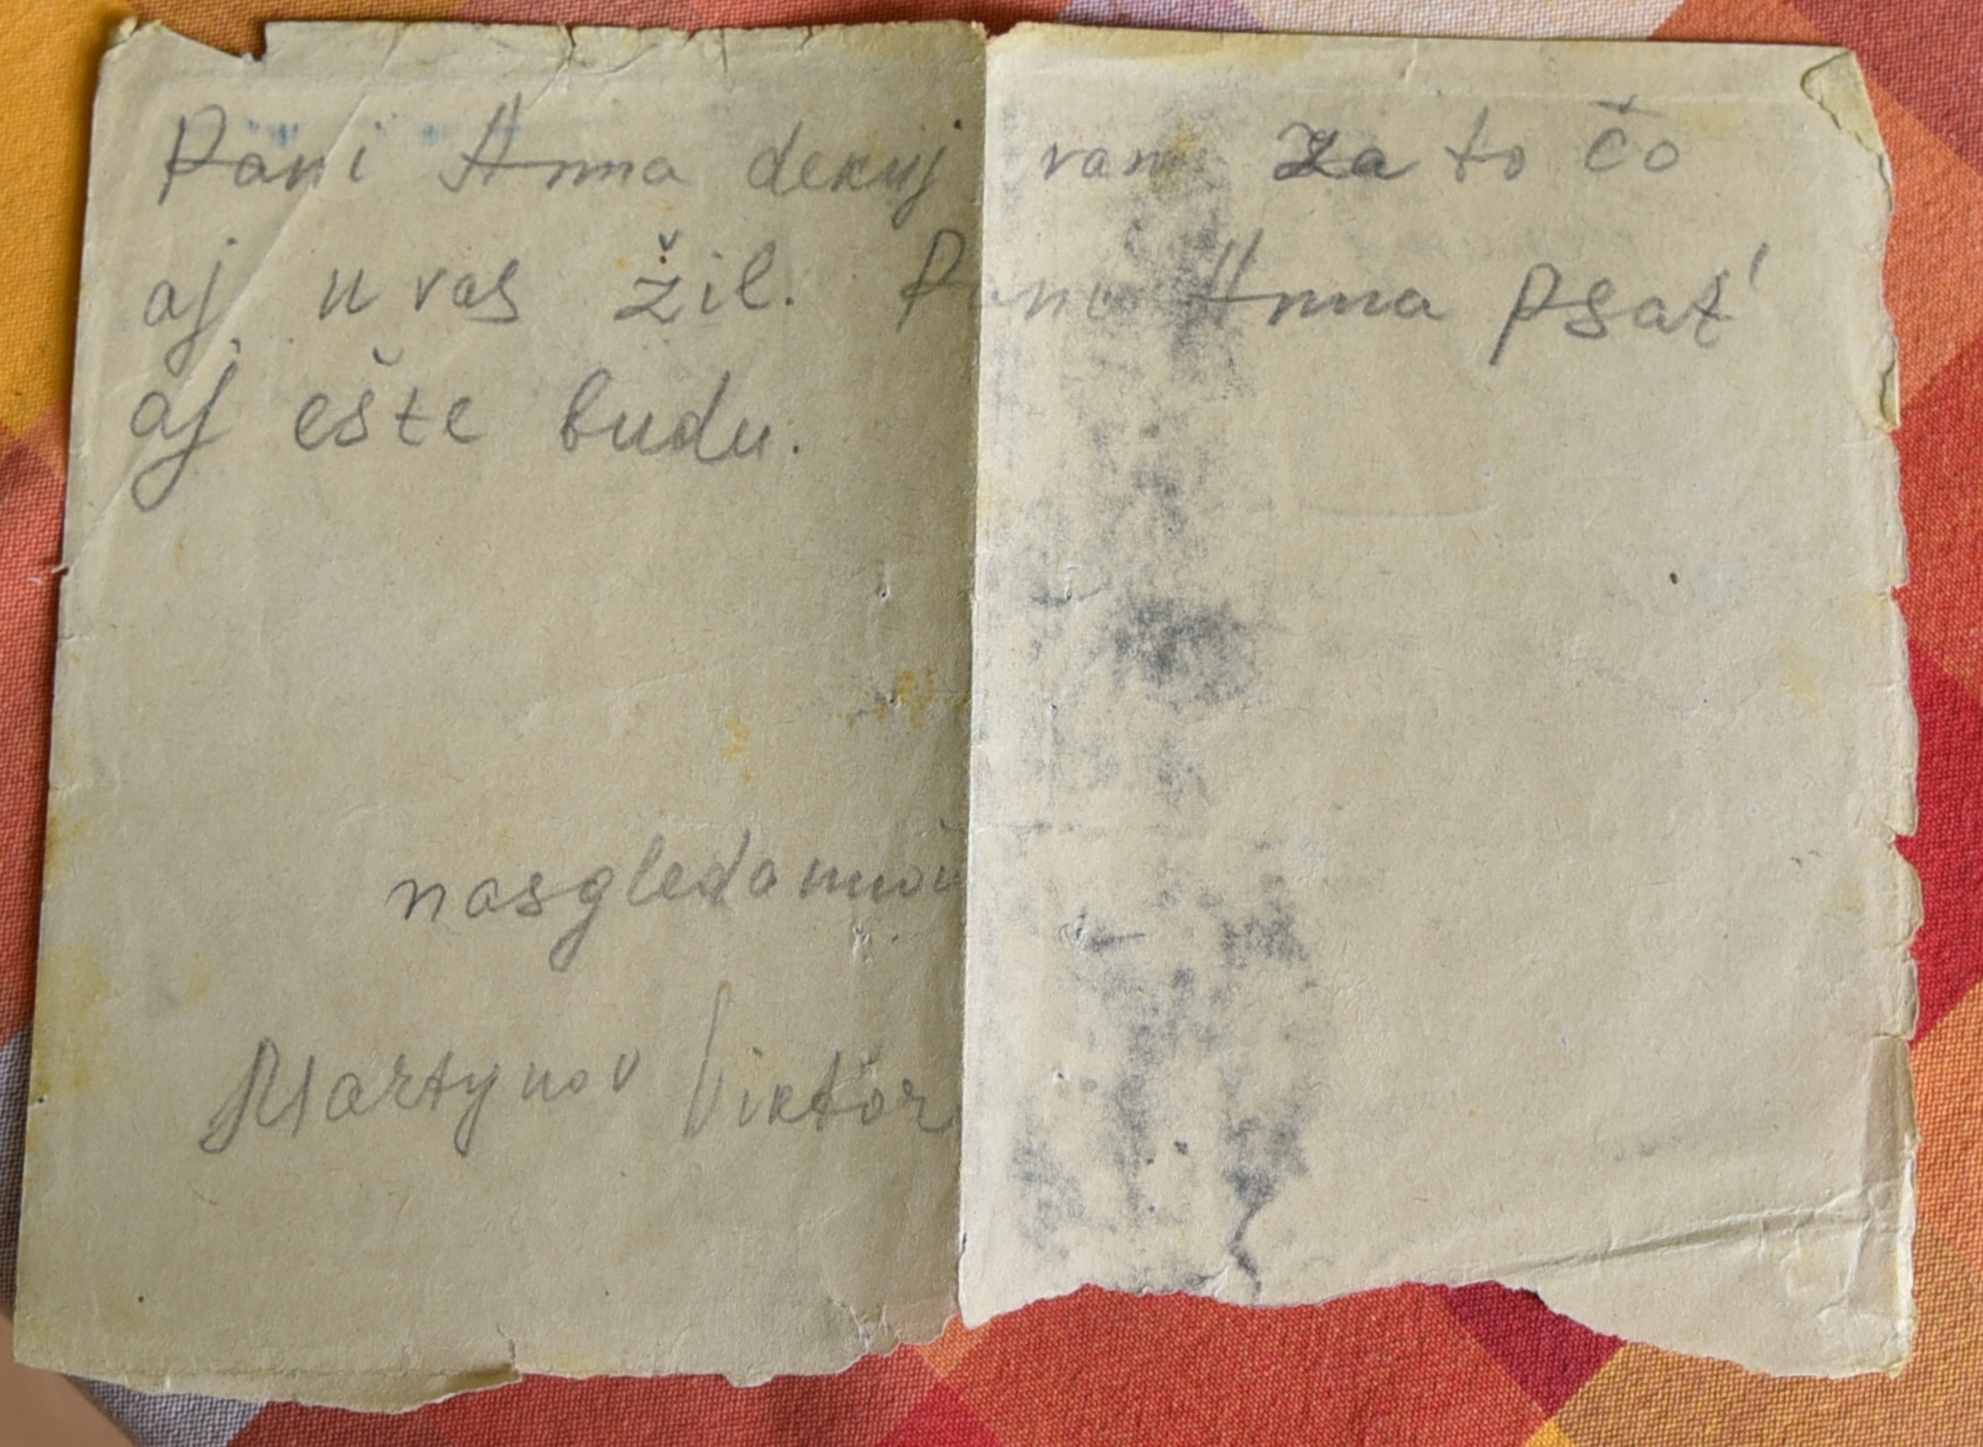 Pani Anna dekuj vam za to čo
aj u vas žil. Pani Anna psať
aj ešte budu.
nasgledannoin
Martynov Viktor